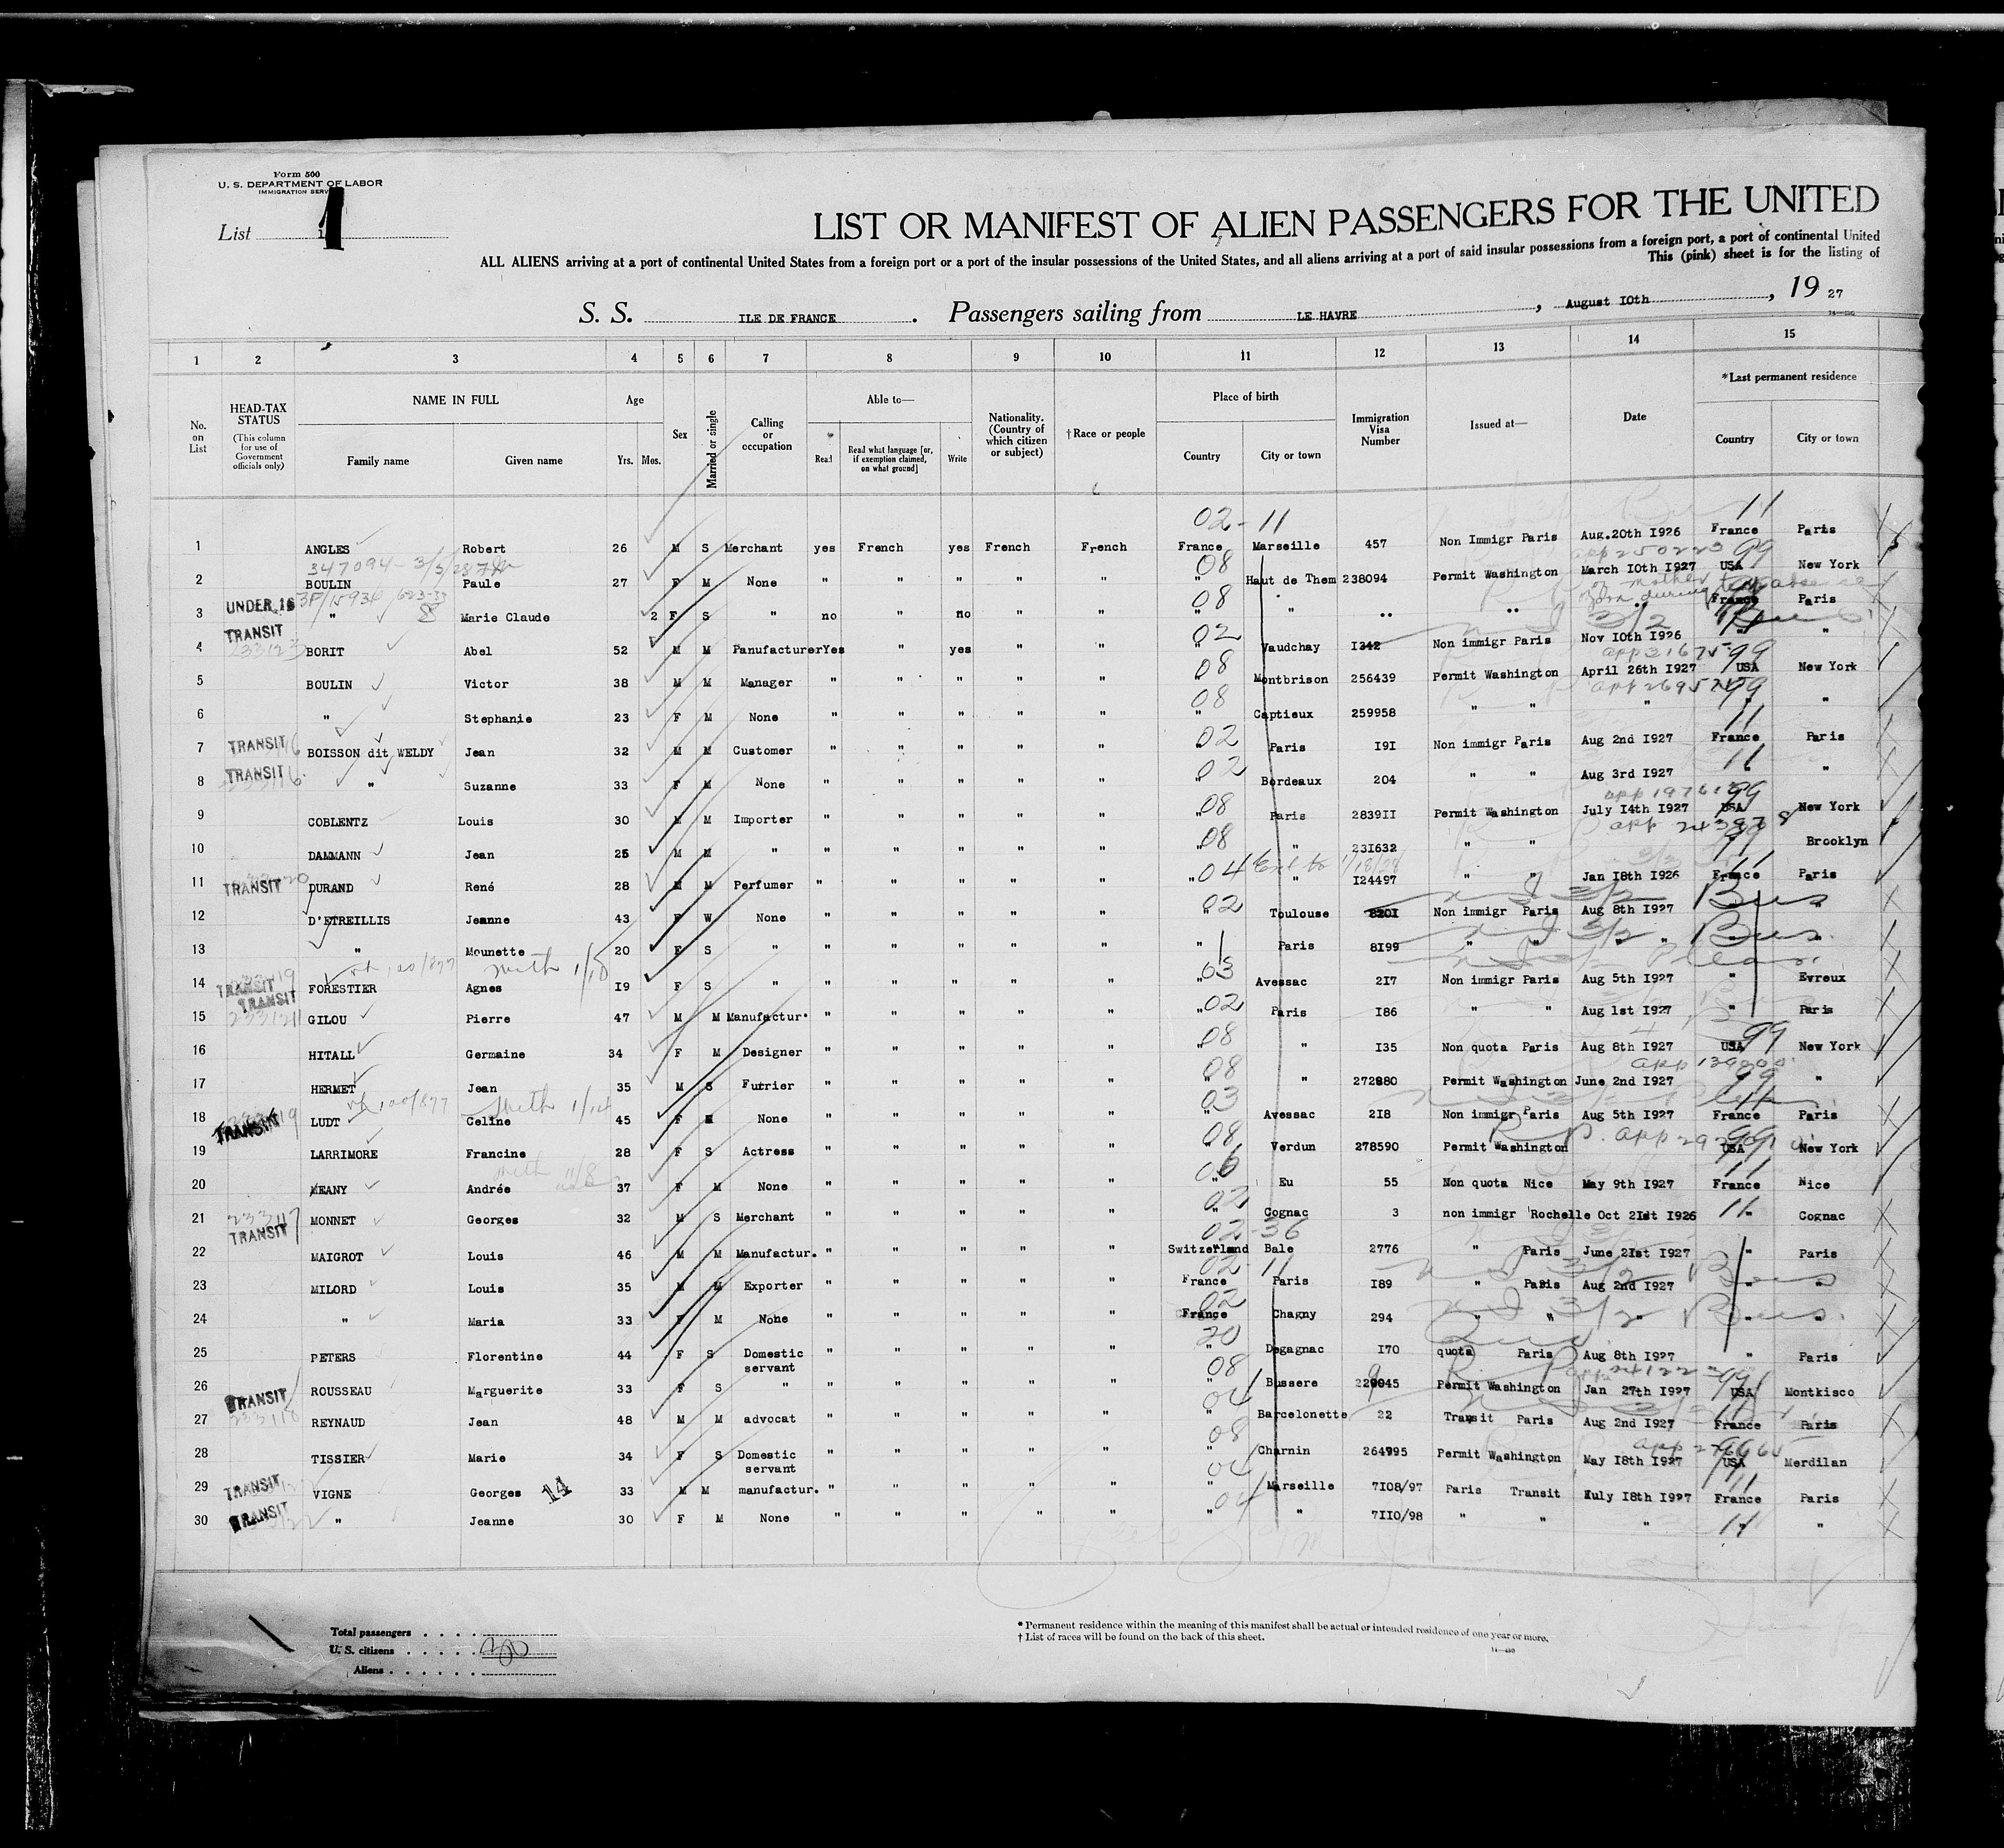 Form 500
U. S. DEPARTMENT OF LABOR
IMMIGRATION SERVICE
List 1
LIST OR MANIFEST OF ALIEN PASSENGERS FOR THE UNITED
ALL ALIENS arriving at a port of continental United States from a foreign port or a port of the insular possessions of the United States, and all aliens arriving at a port of said insular possessions from a foreign port, a port of continental United
This (pink) sheet is for the listing of
S. S. ILE DE FRANCE . Passengers sailing from LE HAVRE , August I0th , 19 27
1 2 3 4 5 6 7 8 9 10 11 12 13 14 15
No. on List
HEAD-TAX STATUS (This column for use of Government officials only)
NAME IN FULL Family name Given name
Age Yrs. Mos.
Sex
Married or single
Calling or occupation
Able to— Read Read what language [or, if exemption claimed, on what ground] Write
Nationality. (Country of which citizen or subject)
†Race or people
Place of birth Country City or town
Immigration Visa Number
Issued at—
Date
*Last permanent residence Country City or town
02-11 11
1 ANGLES Robert 26 M S Merchant yes French yes French French France Marseille 457 Non Immigr Paris Aug.20th I926 France Paris
347094 - 3/5/28 08 app 250223 99
2 BOULIN Paule 27 F M None " " " " " " Haut de Them 238094 Permit Washington March I0th I927 USA New York
UNDER 16 08
3 " Marie Claude 2 F S " no no " " " " " " France Paris
TRANSIT 02 11
4 BORIT Abel 52 M M Panufacturer Yes " yes " " " Vaudchay I342 Non immigr Paris Nov I0th I926 " "
08 99
5 BOULIN Victor 38 M M Manager " " " " " " Montbrison 256439 Permit Washington April 26th I927 USA New York
08 99
6 " Stephanie 23 F M None " " " " " " Captieux 259958 " " " " "
TRANSIT 02 11
7 BOISSON dit WELDY Jean 32 M M Customer " " " " " " Paris I9I Non immigr Paris Aug 2nd I927 France Paris
TRANSIT 02 11
8 " Suzanne 33 F M None " " " " " " Bordeaux 204 " " Aug 3rd I927 " "
08 99
9 COBLENTZ Louis 30 M M Importer " " " " " " Paris 2839II Permit Washington July I4th I927 USA New York
08 app 24397 8
10 DAMMANN Jean 25 M M " " " " " " " " 23I632 " " " Brooklyn
TRANSIT 04 1/18/28 11
11 DURAND René 28 M M Perfumer " " " " " " " I24497 " " Jan I8th I926 France Paris
02
12 D'ETREILLIS Jeanne 43 F W None " " " " " " Toulouse 820I Non immigr Paris Aug 8th I927 " "
13 " Mounette 20 F S " " " " " " " Paris 8I99 " " " " " "
TRANSIT 03
14 FORESTIER Agnes I9 F S " " " " " " " Avessac 2I7 Non immigr Paris Aug 5th I927 " Evreux
TRANSIT 02
15 GILOU Pierre 47 M M Manufactur. " " " " " " Paris I86 " " Aug Ist I927 " Paris
08 99
16 HITALL Germaine 34 F M Designer " " " " " " " I35 Non quota Paris Aug 8th I927 USA New York
08 99
17 HERMET Jean 35 M S Furrier " " " " " " " 272880 Permit Washington June 2nd I927 " "
TRANSIT 03 11
18 LUDT Celine 45 F M None " " " " " " Avessac 2I8 Non immigr Paris Aug 5th I927 France Paris
08 99
19 LARRIMORE Francine 28 F S Actress " " " " " " Verdun 278590 Permit Washington USA New York
06 11
20 MEANY Andrée 37 F M None " " " " " " Eu 55 Non quota Nice May 9th I927 France Nice
TRANSIT 02
21 MONNET Georges 32 M S Merchant " " " " " " Cognac 3 non immigr Rochelle Oct 2Ist I926 " Cognac
02-36
22 MAIGROT Louis 46 M M Manufactur. " " " " " Switzerland Bale 2776 " Paris June 2Ist I927 " Paris
02-11
23 MILORD Louis 35 M M Exporter " " " " " France Paris I89 " Paris Aug 2nd I927 " "
02
24 " Maria 33 F M None " " " " " France Chagny 294 " " " " "
20
25 PETERS Florentine 44 F S Domestic servant " " " " " " Degagnac I70 quota Paris Aug 8th I927 " Paris
08 99
26 TRANSIT ROUSSEAU Marguerite 33 F S " " " " " " " Bussere 229045 Permit Washington Jan 27th I927 USA Montkisco
04 11
27 REYNAUD Jean 48 M M advocat " " " " " " Barcelonette 22 Transit Paris Aug 2nd I927 France Paris
08 99
28 TISSIER Marie 34 F S Domestic servant " " " " " " Charnin 264995 Permit Washington May I8th I927 USA Merdilan
04 11
29 TRANSIT VIGNE Georges 14 33 M M manufactur. " " " " " " Marseille 7I08/97 Paris Transit Kuly I8th I927 France Paris
04 11
30 TRANSIT " Jeanne 30 F M None " " " " " " " 7II0/98 " " " " "
Total passengers
U. S. citizens 30
Aliens
* Permanent residence within the meaning of this manifest shall be actual or intended residence of one year or more.
† List of races will be found on the back of this sheet.